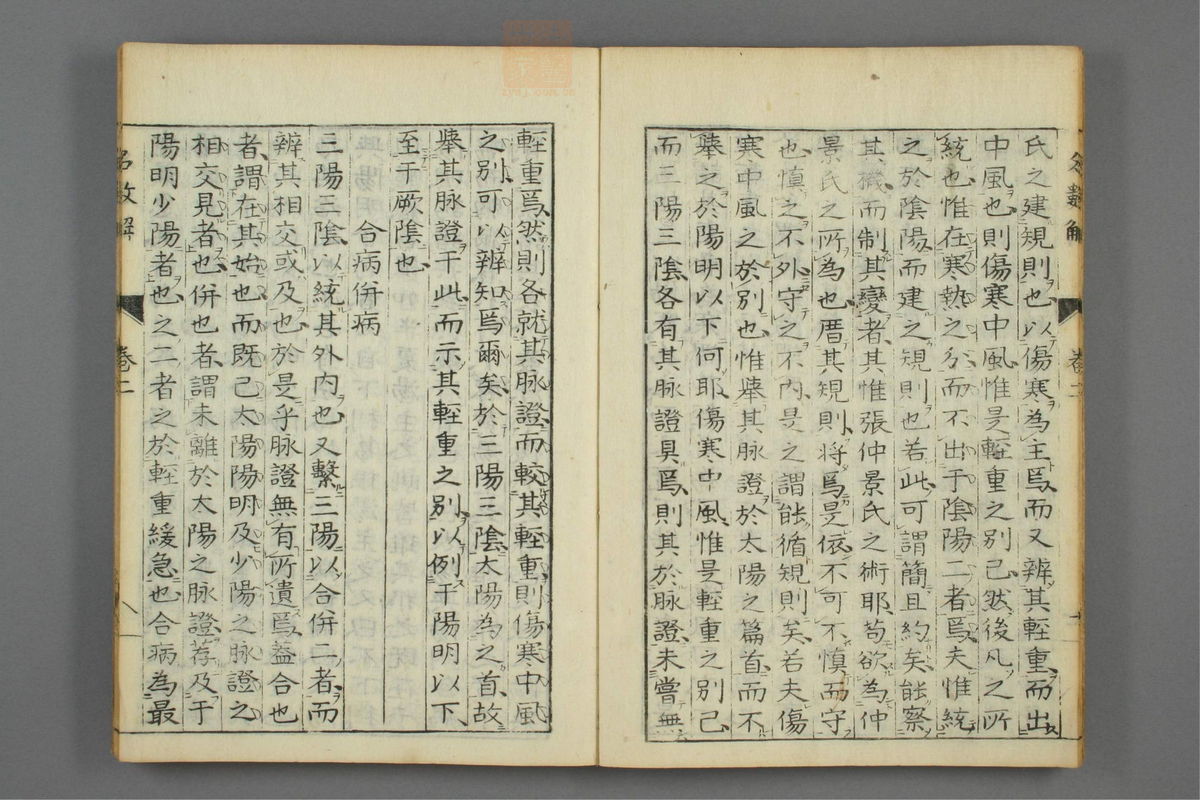 氏之建規則也以傷寒為主焉而又辨其輕重而出
中風也則傷寒中風惟是輕重之別已然後凡之所
統也惟在寒熱之分而不出于陰陽二者焉夫惟統
之於陰陽而建之規則也若此可謂簡且約矣能察
其機而制其變者其惟張仲景氏之術耶苟欲為仲
景氏之所為也厝其規則將焉是依不可不慎而守
也慎之不外守之不內是之謂能循規則矣若夫傷
寒中風之於別也惟舉其脉證於太陽之篇首而不
舉之於陽明以下何耶傷寒中風惟是輕重之別已
而三陽三陰各有其脉證具焉則其於脉證未嘗無
輕重焉然則各就其脉證而較其輕重則傷寒中風
之別可以辨知焉爾矣於三陽三陰太陽為之首故
舉其脉證于此而示其輕重之別以例于陽明以下
至于厥陰也
合病併病
三陽三陰以統其外內也又繫三陽以合併二者而
辨其相交或及也於是乎脉證無有所遺焉蓋合也
者謂在其始也而既已太陽陽明及少陽之脉證之
相交見者也併也者謂未離於太陽之脉證荐及于
陽明少陽者也之二者之於輕重緩急也合病為最
卷二
名數解
卷二